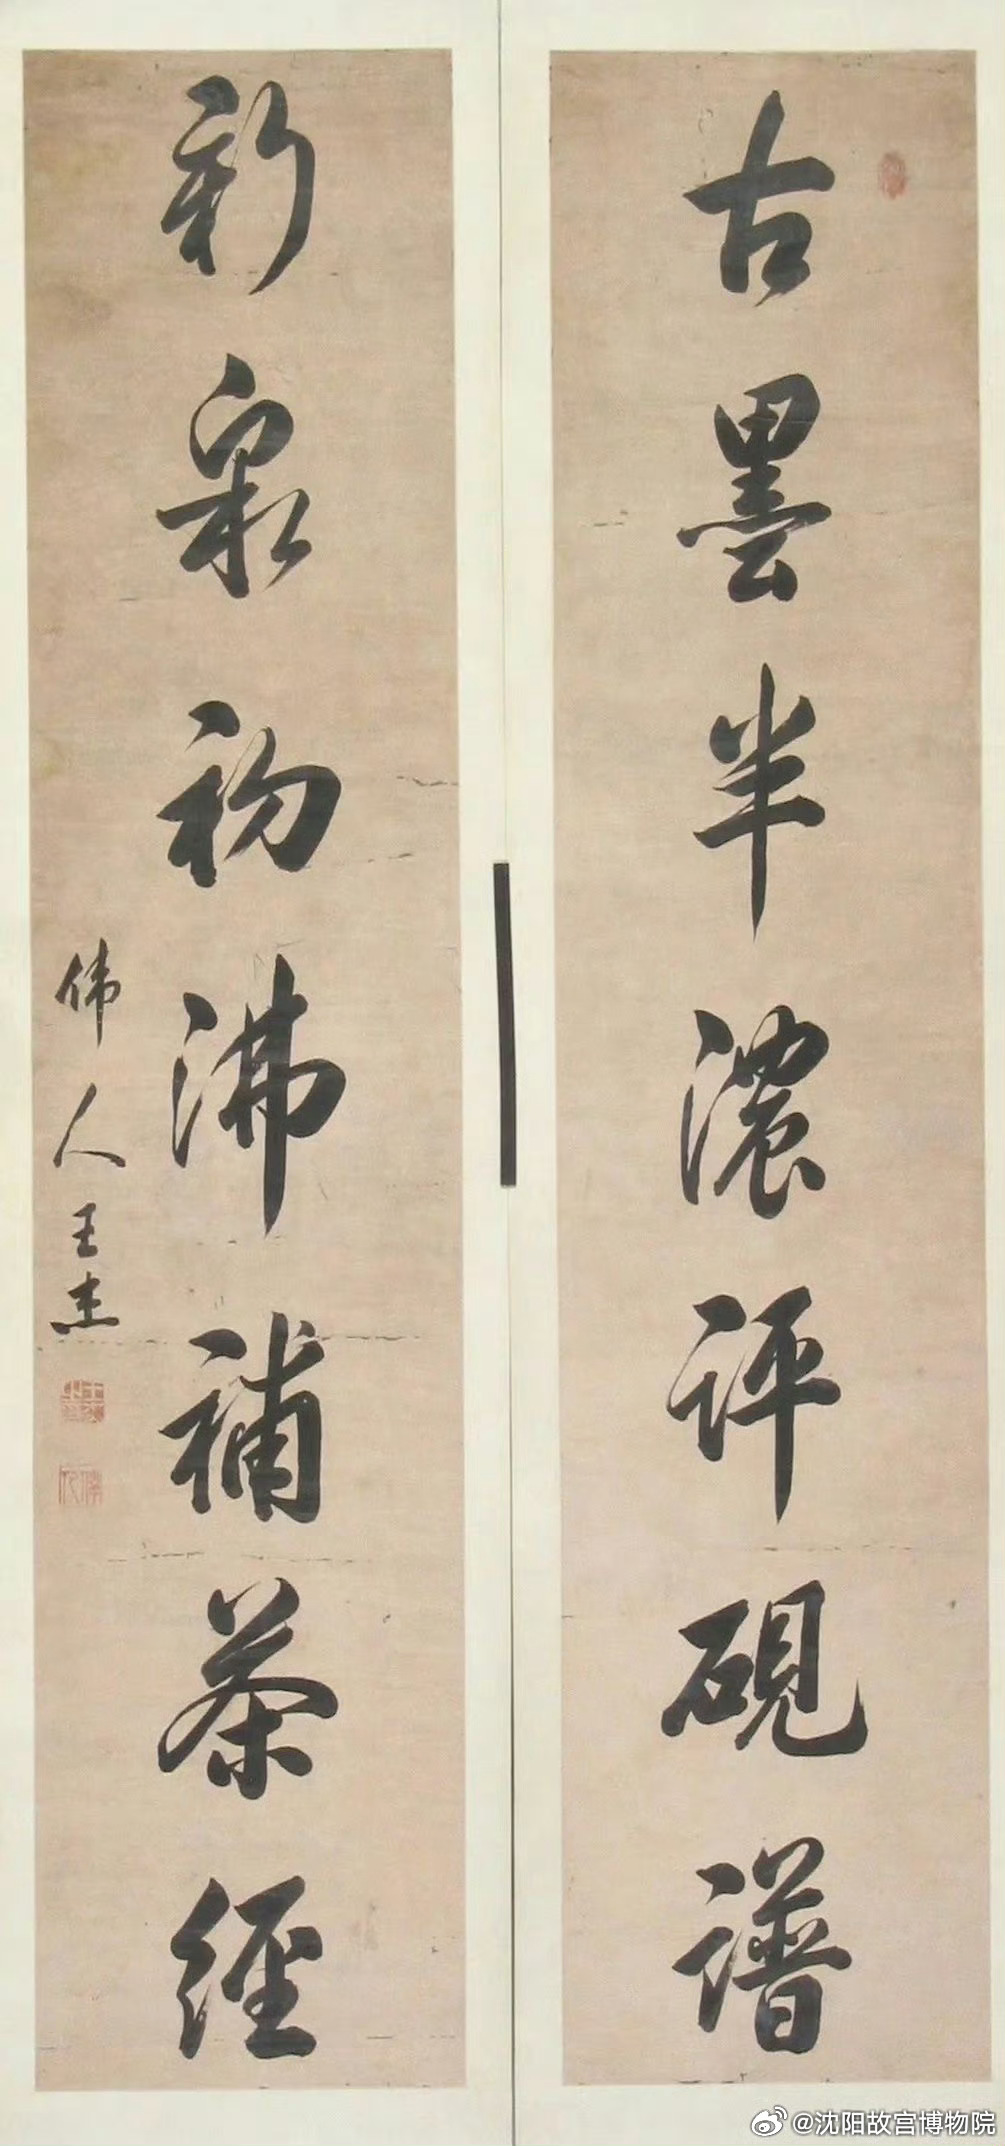 古墨半濃評硯譜
新泉初沸補茶經
偉人王杰
@沈阳故宫博物院